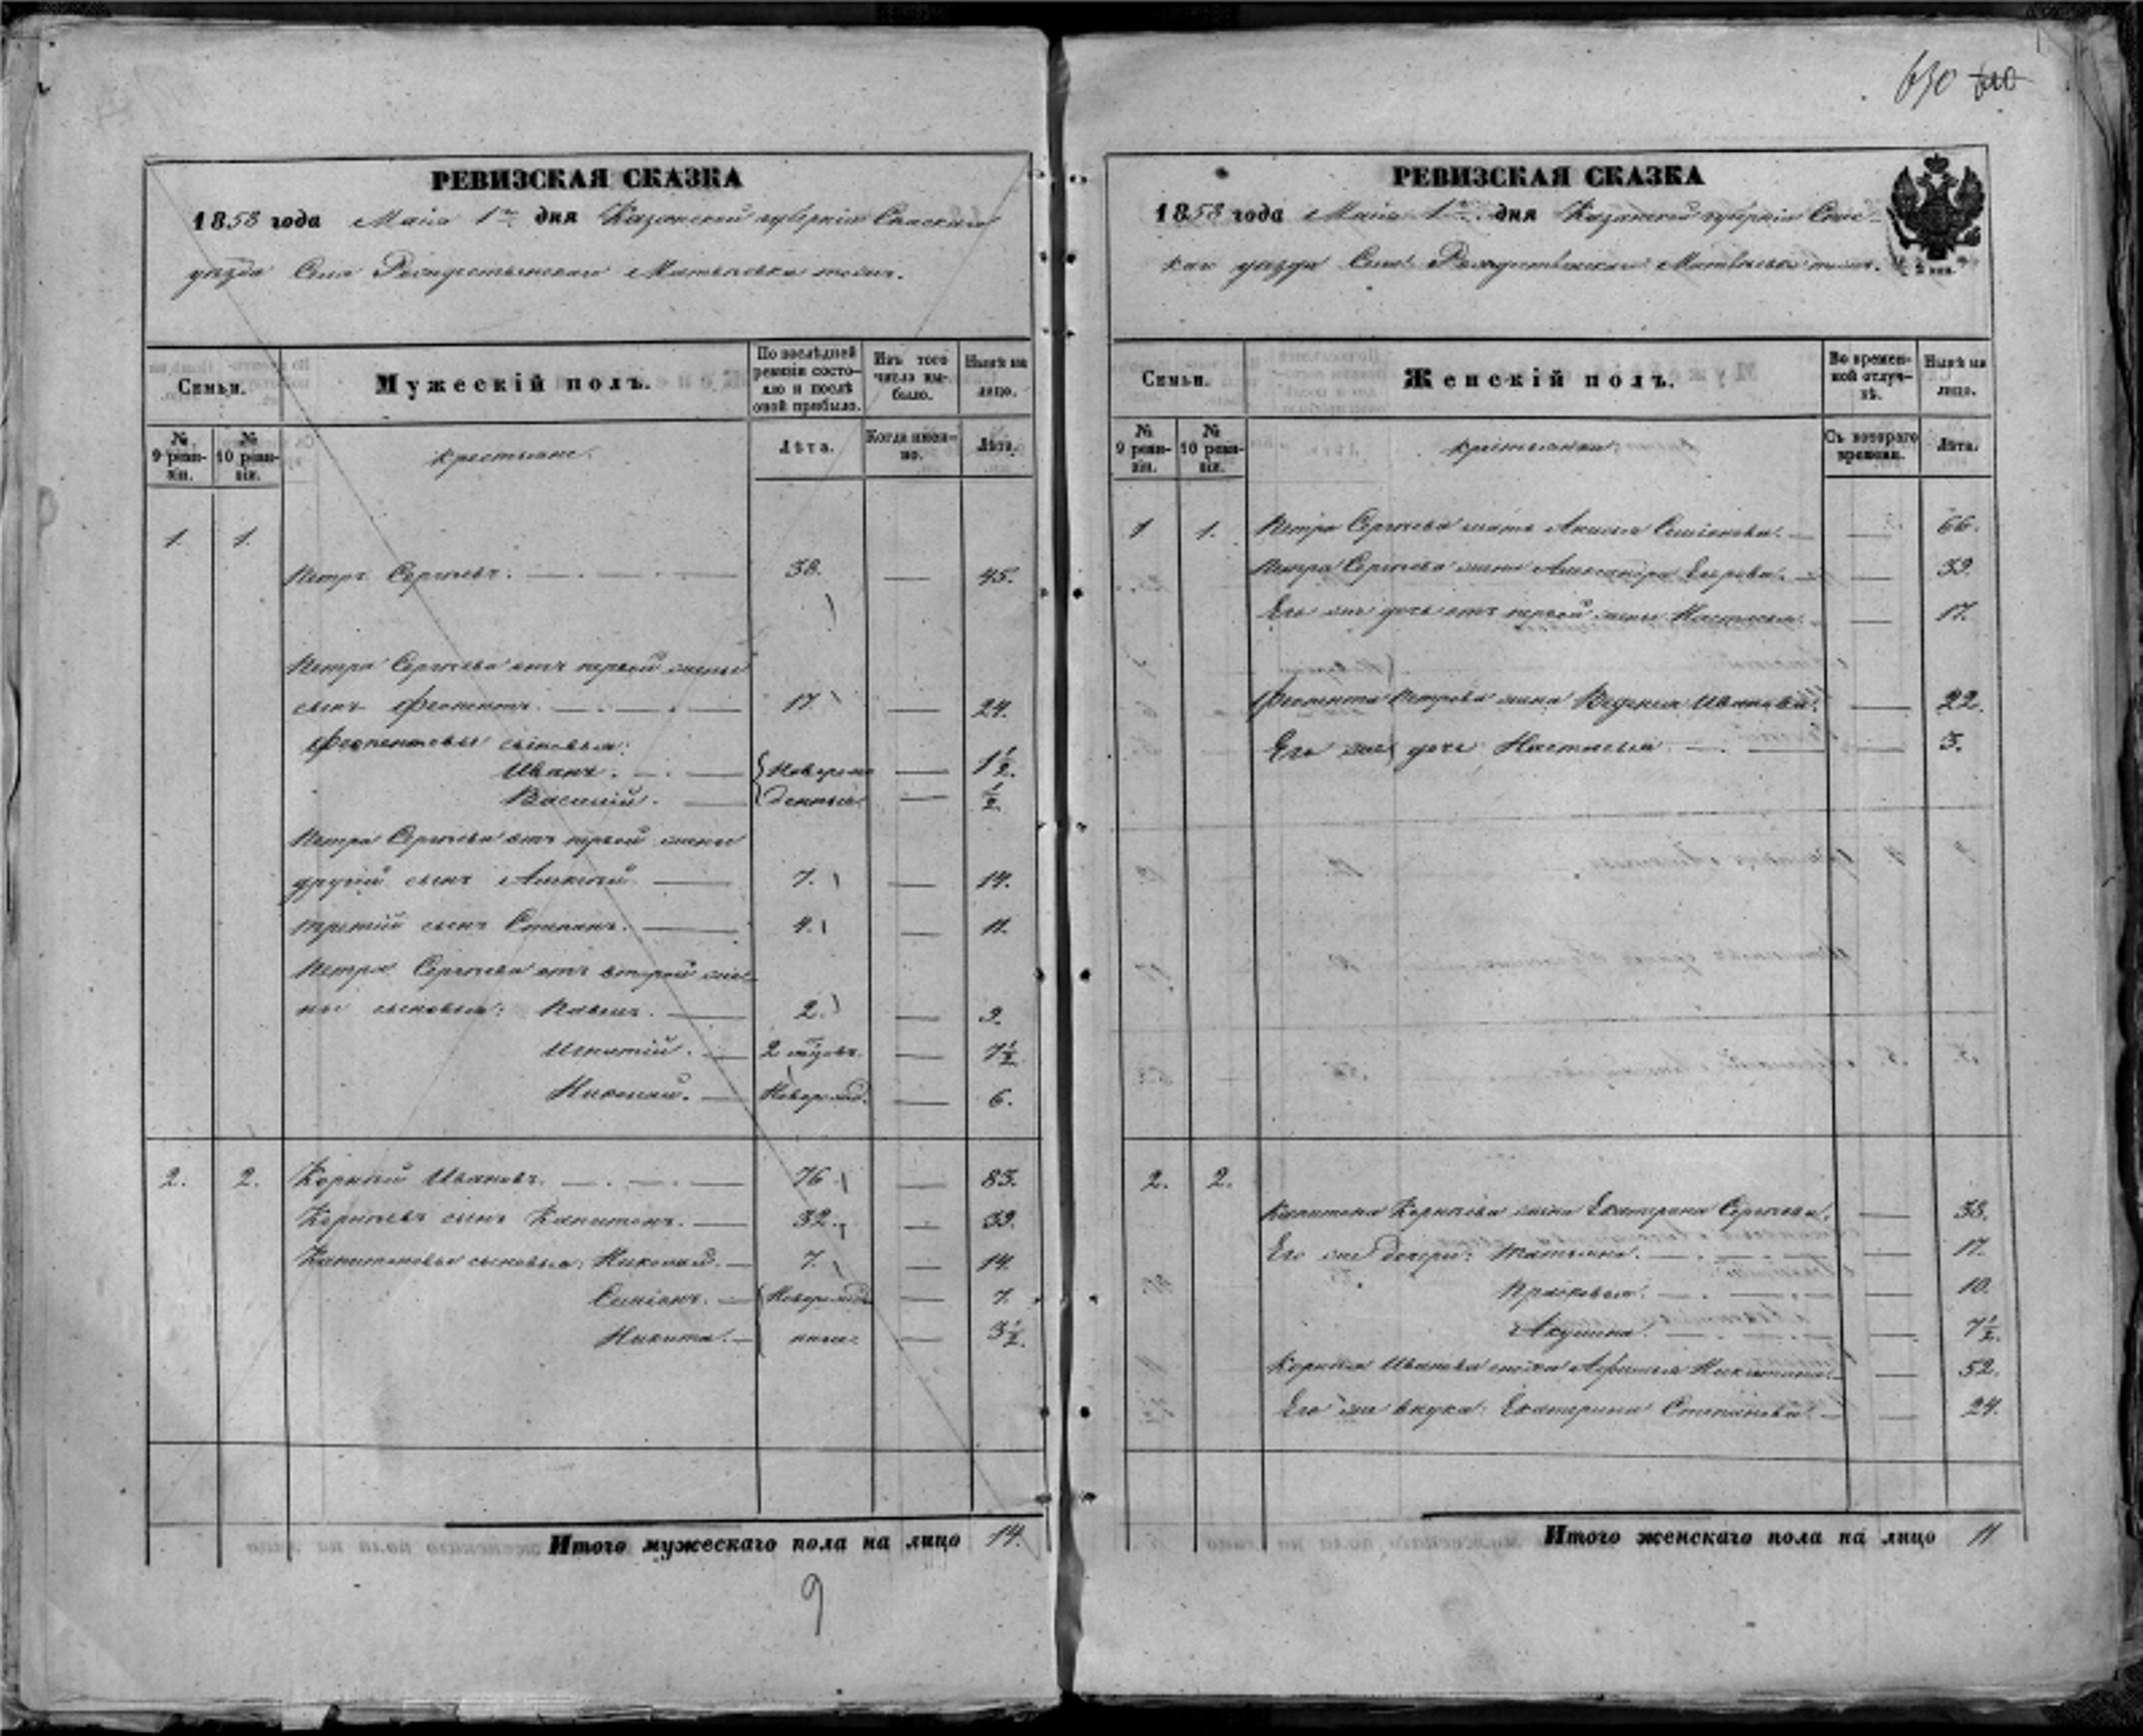 630 610
РЕВИЗСКАЯ СКАЗКА
1858 года Маія 1го дня Казанской губерніи Спаскаго
уѣзда Села Рождественскаго Матвѣевка тожъ.
Семьи.
Мужескій полъ.
По послѣдней ревизіи состояло и послѣ оной прибыло.
Изъ того числа выбыло.
Нынѣ на лицо.
№ 9 ревизіи.
№ 10 ревизіи.
крестьяне.
Лѣта.
Когда именно.
Лѣта.
1. 1.
Петръ Сергѣевъ. 38. 45.
Петра Сергѣева отъ первой жены
сынъ Феопентъ. 17 24.
Феопентовы сыновья:
Иванъ. Новорож 1 1/2.
Василій. денные. 1/2.
Петра Сергѣева отъ первой жены
другой сынъ Алексѣй 7. 14.
третій сынъ Степанъ. 4. 11.
Петра Сергѣева отъ второй же
ны сыновья: Павелъ. 2. 9.
Игнатій. 2 7 1/2
Николай. Новорожд. 6.
2. 2. Корнѣй Ивановъ. 76. 83.
Корнѣевъ сынъ Капитонъ. 32. 39.
Капитоновы сыновья: Николай. 7. 14.
Семіонъ. Новорожд 7.
Никита. 3 1/2.
Итого мужескаго пола на лицо 14.
9
РЕВИЗСКАЯ СКАЗКА
1858 года Маія 1го дня Казанской губерніи Спас
каго уѣзда Села Рождественскаго Матвѣевка тожъ.
Семьи.
Женскій полъ.
Во временной отлучкѣ.
Нынѣ на лицо.
№ 9 ревизіи.
№ 10 ревизіи.
крестьянки.
Съ котораго времени.
Лѣта.
1 1. Петра Сергѣева мать Анисья Семіонова. 66.
Петра Сергѣева жена Александра Егорова. 39.
Его же дочь отъ первой жены Настасья. 17.
Феопента Петрова жена Веденья Иванова. 22.
Его же дочь Настасья 3.
2. 2.
Капитона Корнѣева жена Екатерина Сергѣева. 38.
Его же дочери: Татьяна. 17.
Прасковья. 10.
Акулина. 7 1/2.
Корнѣя Иванова сноха Афимья Никитина. 52.
Его же внука: Екатерина Степанова. 24.
Итого женскаго пола на лицо 11